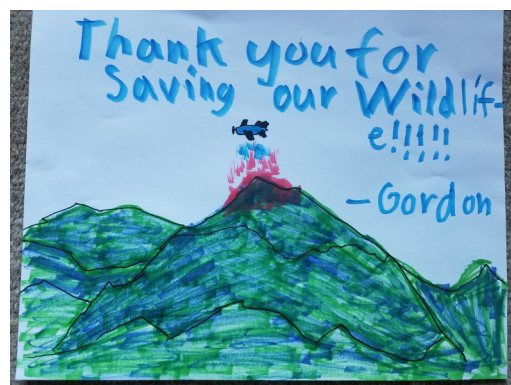 Thank you for
Saving our Wildlif-
e!!!!!
-Gordon